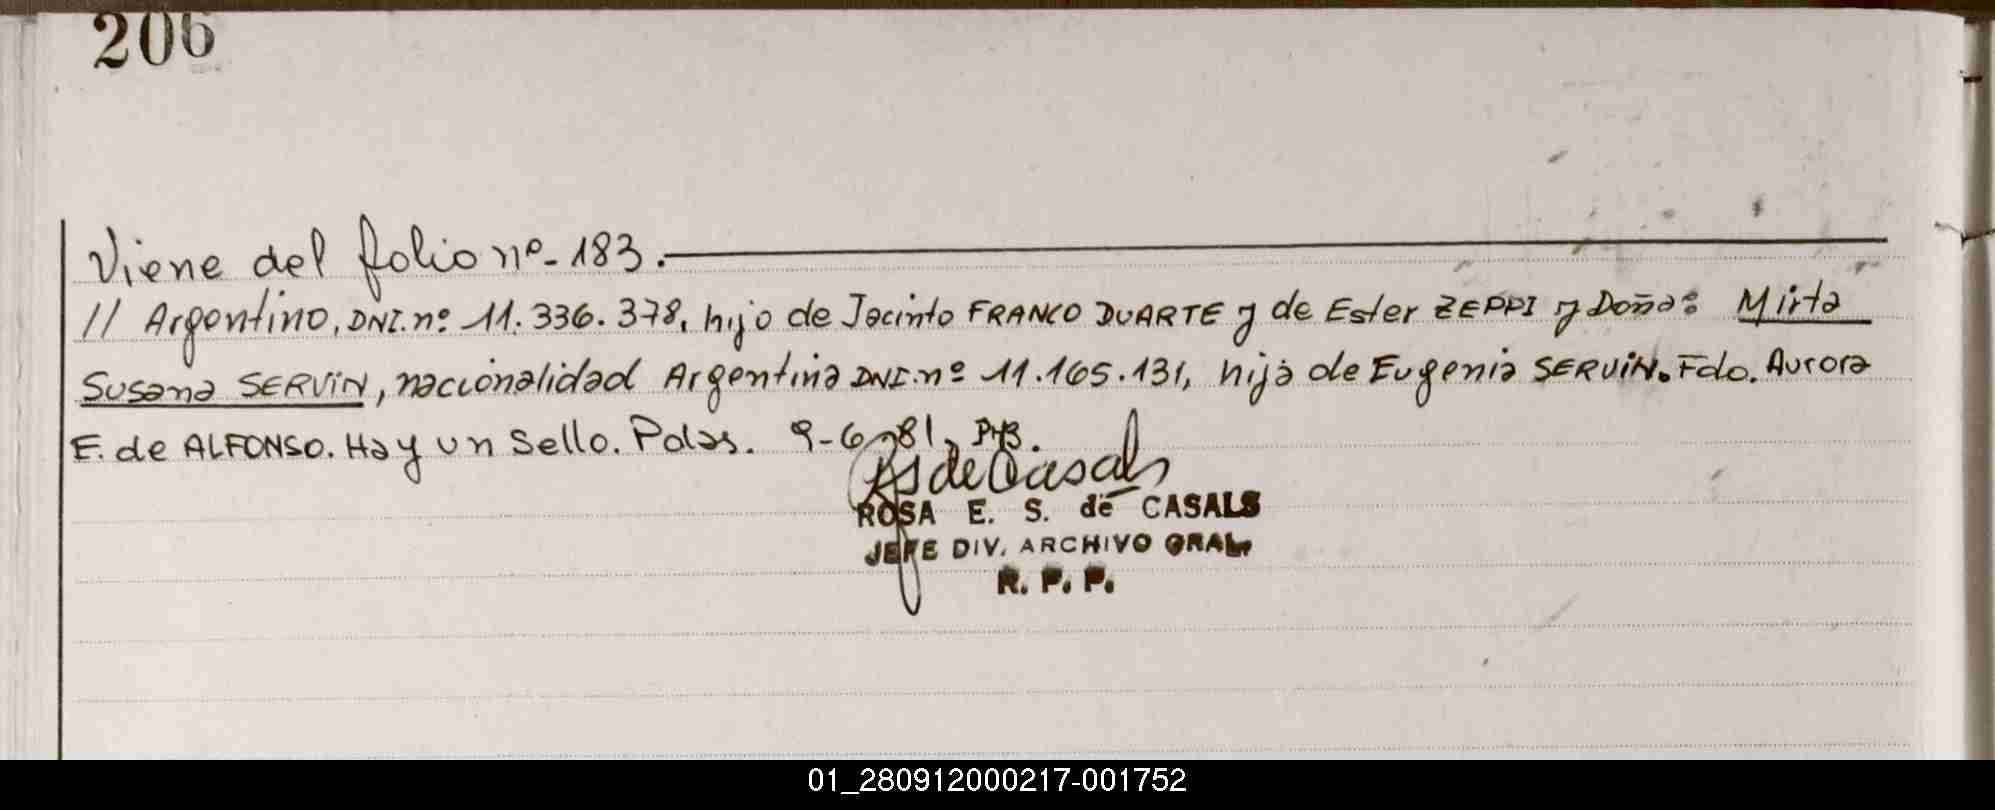 206
Viene del folio nº- 183.
// Argentino, DNI. nº 11.336.378, hijo de Jacinto FRANCO DUARTE y de Ester ZEPPI y Doña: Mirta
Susana SERVIN, nacionalidad Argentina DNI. nº 11.165.131, hija de Eugenia SERVIN. Fdo. Aurora
E. de ALFONSO. Hay un Sello. Pdas. 9-6-81,
RS de Casals
ROSA E. S. de CASALS
JEFE DIV. ARCHIVO GRAL.
R. P. P.
01_280912000217-001752